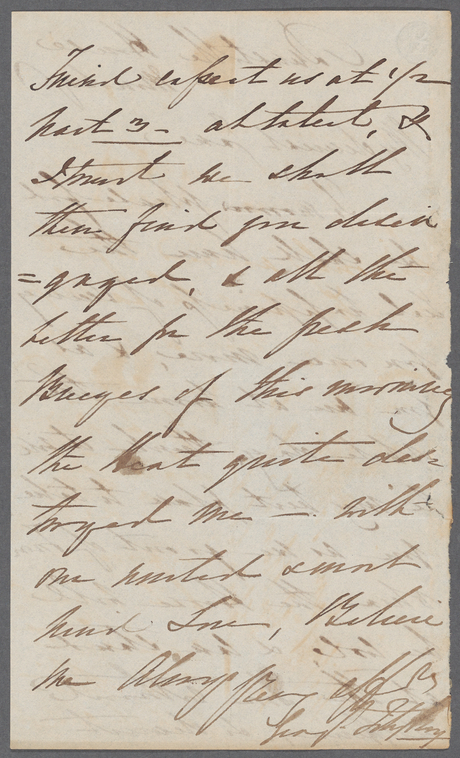 Friend expect us at 1/2
past 3 - at latest, &
I trust we shall
then find you disen
=gaged, & all the
better for the fresh
Breezes of this morning
the Heat quite des=
troyed me - with
our united & most
kind Love, Believe
me Always Yours